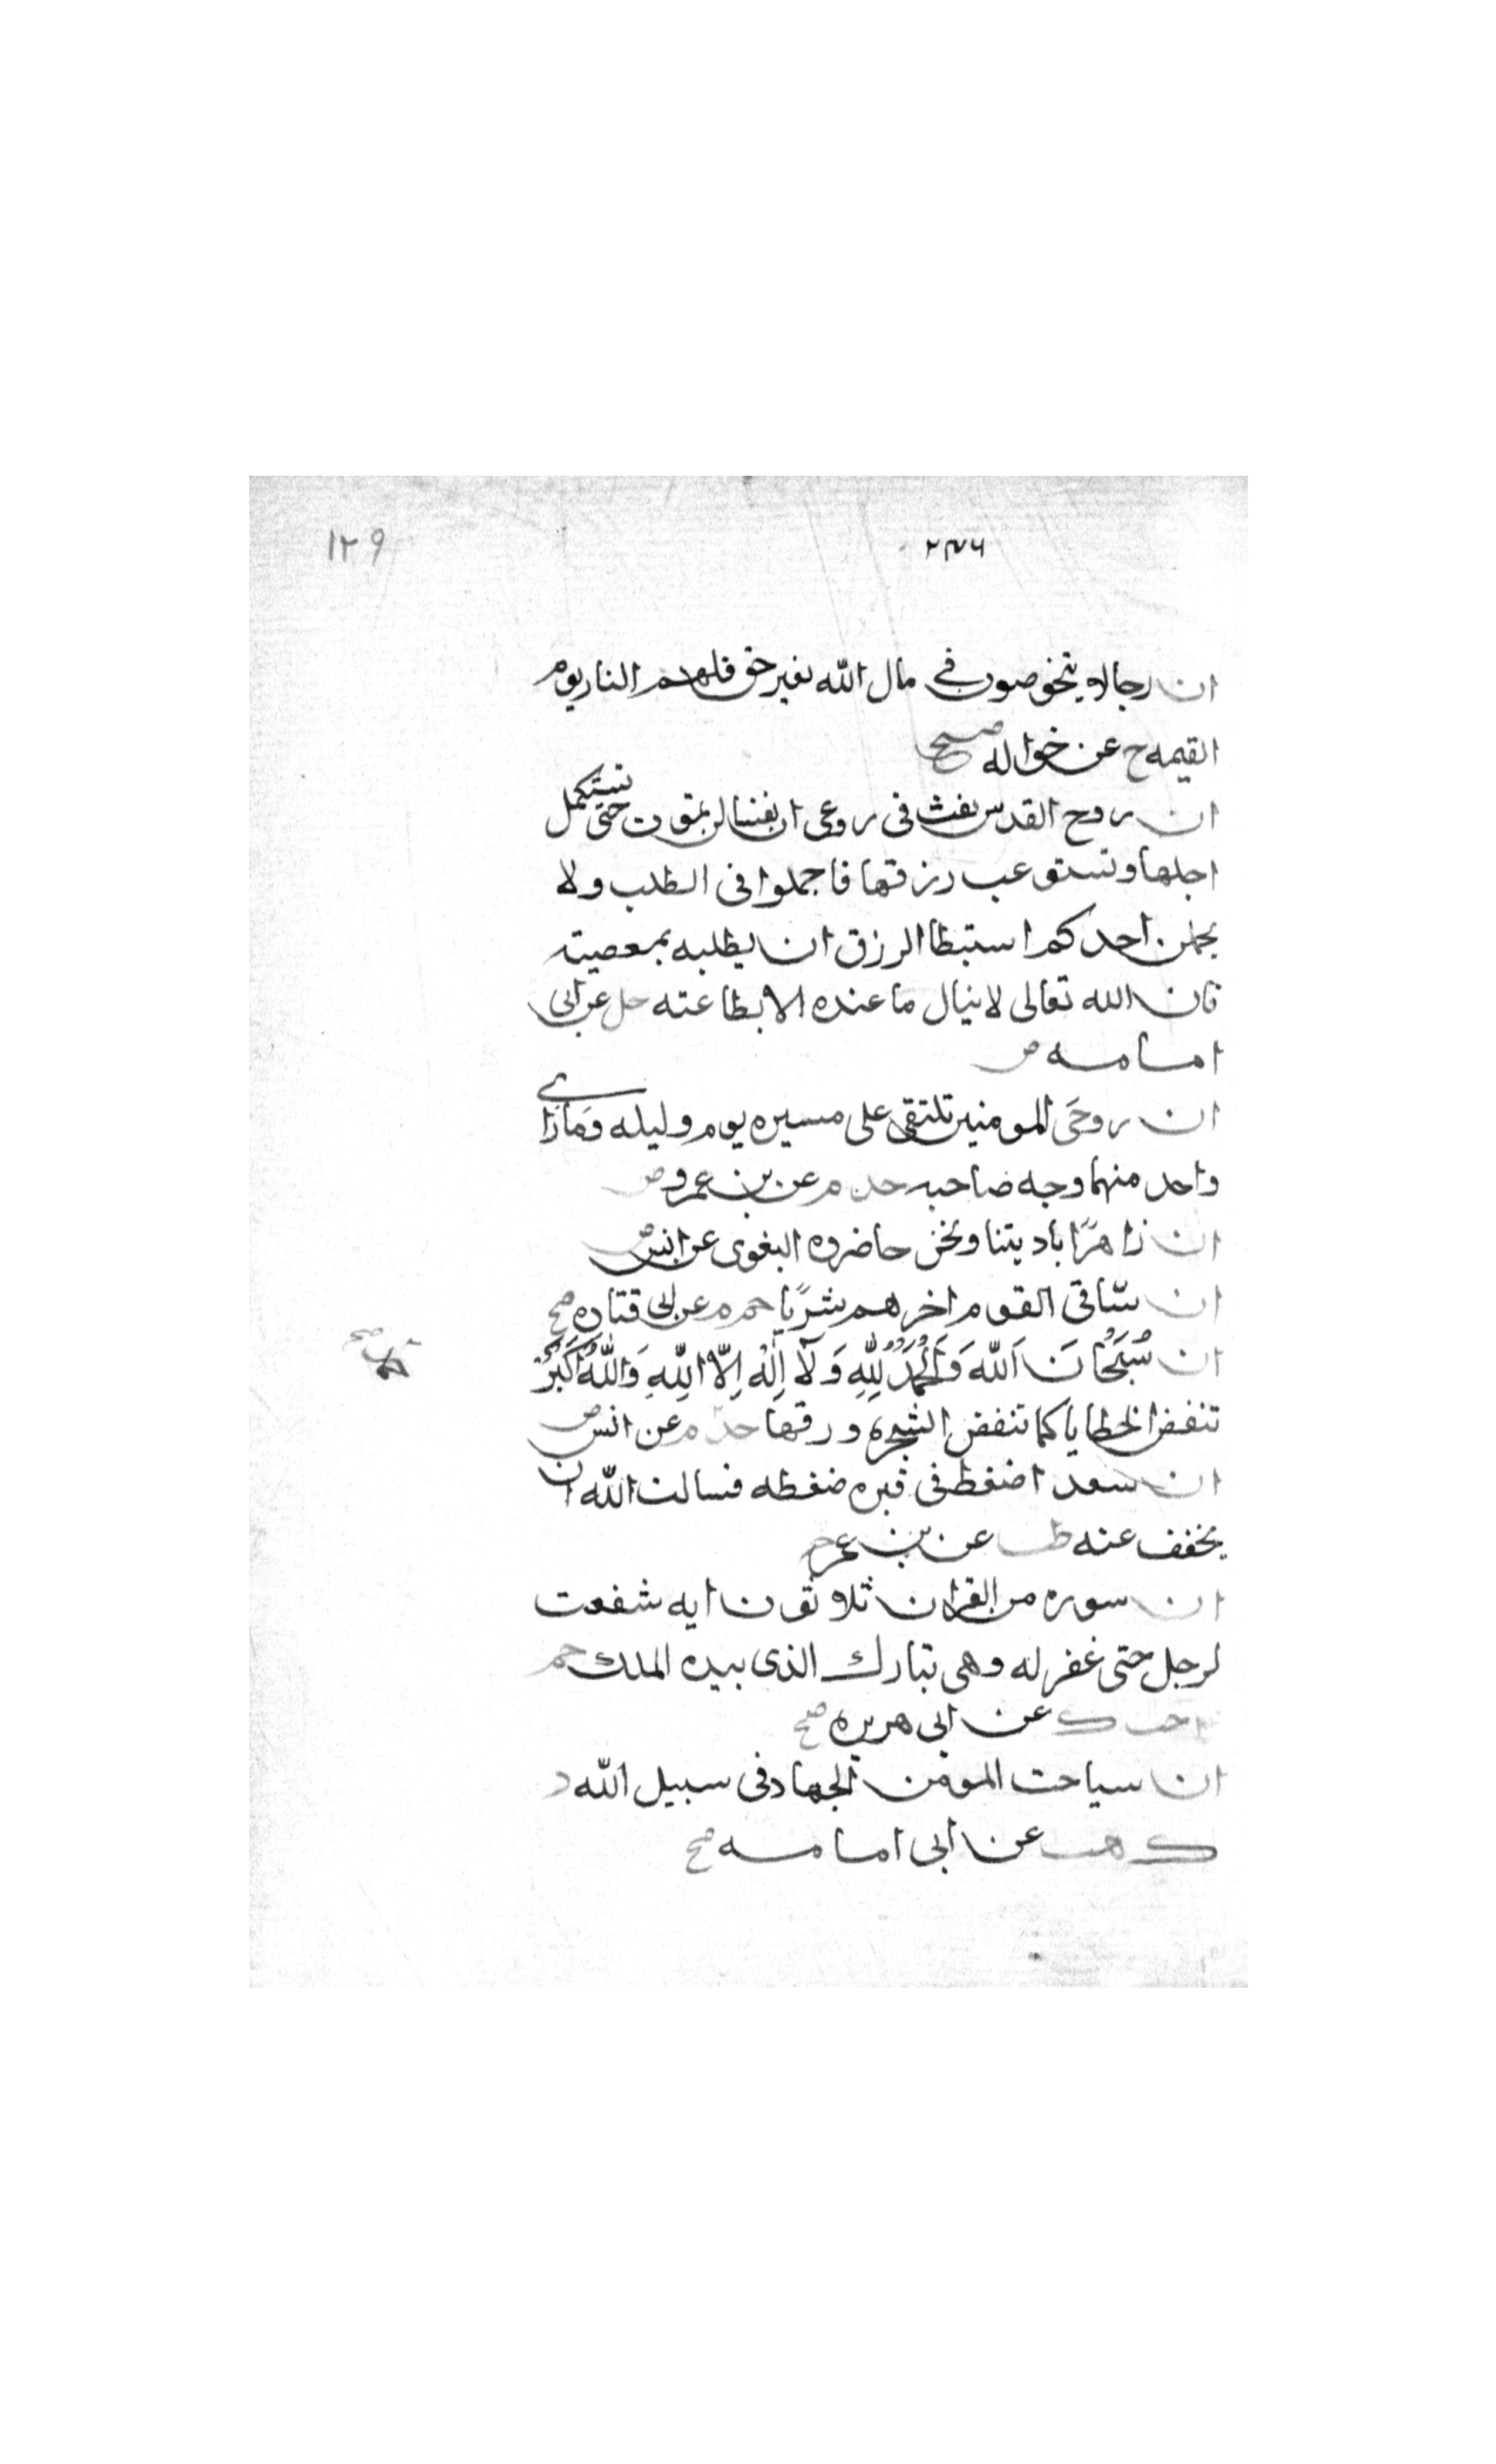 ١٢٩
٢٣٦
ان رجالا يتخوضون في مال الله بغير حق فلهم النار يوم
القيمه خ عن خوله صحيح
ان روح القدس نفث فى روعى ان نفسا لن تموت حتى تستكمل
اجلها وتستوعب رزقها فاجملوا فى الطلب ولا
يحملن احدكم استبطا الرزق ان يطلبه بمعصيته
فان الله تعالى لا ينال ما عنده الا بطاعته حل عن ابى
امامه ض
ان روحَى المومنين تلتقى على مسيره يوم وليله وَمَا رَاى
واحد منهما وجه صاحبه خد عن بن عمرو ض
ان زاهرًا باديتنا ونحن حاضروه البغوى عن انس ض
ان ساقى القوم اخرهم شربًا حم م عن ابى قتاده صح
ان سُبْحَانَ اللَّهَ وَالْحَمْدُ لِلَّهِ وَلَا إِلَهَ إِلَّا اللَّهِ وَاللَّهُ أَكْبَرُ
تنفض الخطايا كما تنفض الشجرة ورقها حم خد عن انس ض
ان سعدا ضغط فى قبره ضغطه فسالت الله ان
يخفف عنه طب عن بن عمر ح
ان سوره من القران ثلاثون ايه شفعت
لرجل حتى غفر له وهى تبارك الذى بيده الملك حم
حب ك عن ابى هريره صح
ان سياحت المومن الجهاد فى سبيل الله د
ك هب عن ابى امامه صح